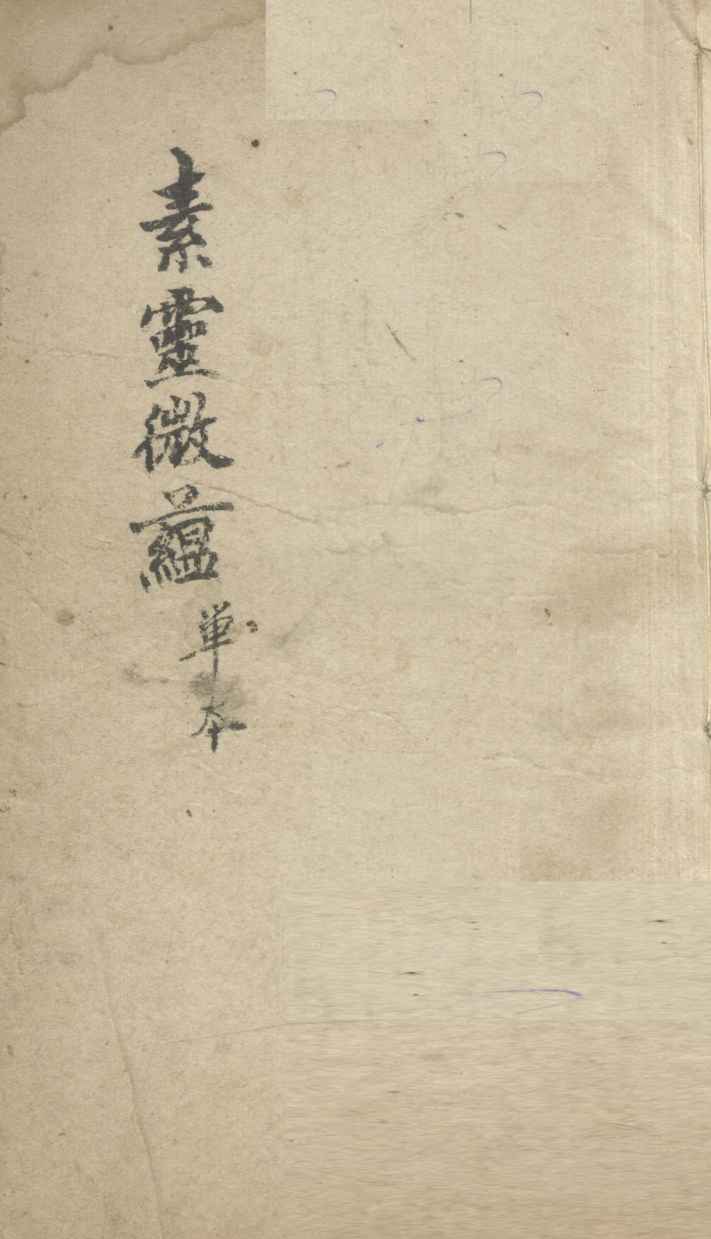 素靈微蘊
單本